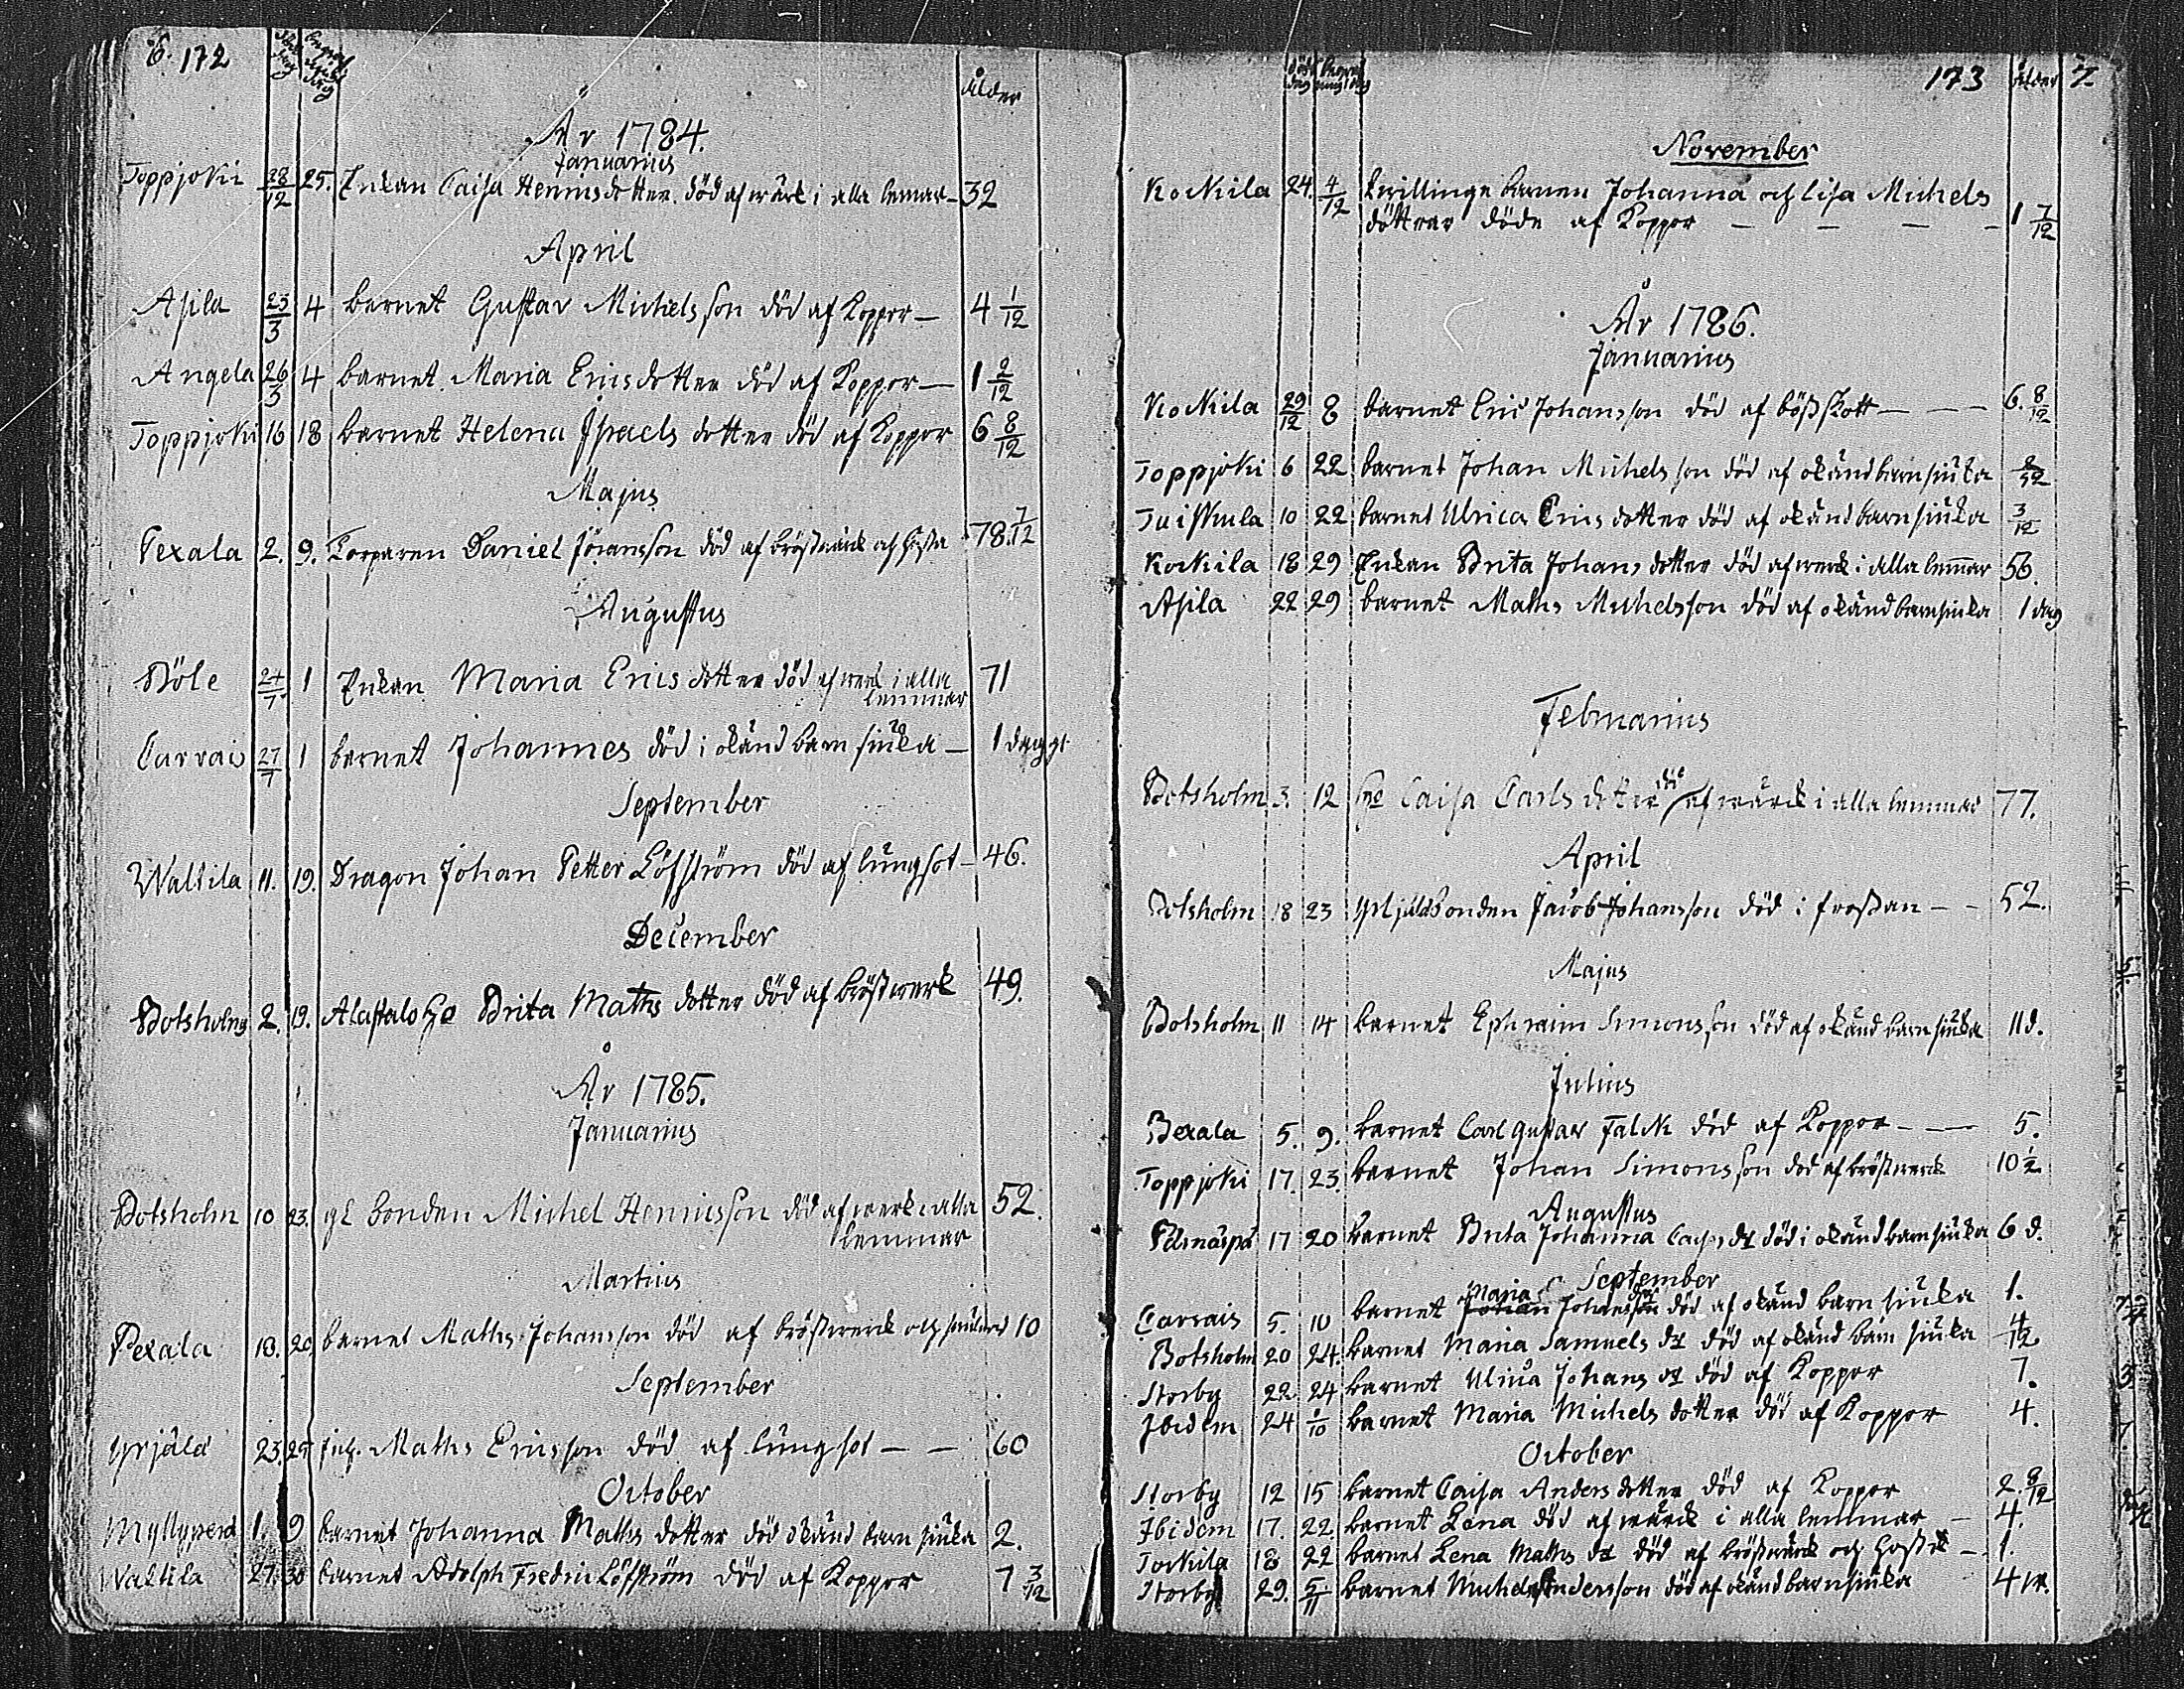 172
Ålder
År 1784.
Januarius
Toppjoki 28/12 25. Enkan Caisa Henricsdotter död af wärk i alla lemar 32
April
Asila 23/3 4 barnet Gustav Michelsson död af Koppor — 4 1/12
Angela 26/3 4 barnet Maria Ericsdotter död af Koppor — 1 2/12
Toppjoki 16 18 barnet Helena Israels dotter död af Koppor 6 8/12
Majus
Pexala 2. 9. Torparen Daniel Jöransson död af bröstwärk och hosta 78. 7/12
Augustus
Böle 24/7 1 Enkan Maria Erics dotter död af werk i alla 71
lemmar
Carvais 27/7 1 barnet Johannes död i okänd barn siuka — 1 dag gl
September
Waltila 11. 19. Dragon Johan Petter Löfström död af lungsot — 46.
December
Botsholm 2. 19. Alastalo Hu Brita Maths dotter död af bröstwerk 49.
År 1785.
Januarius
Botsholm 10 23. gl bonden Michel Henricsson död af werk i alla 52.
lemmar
Martius
Pexala 13. 20 barnet Maths Johansson död af bröstwerk och 10
September
Yrjälä 23. 25 inh. Maths Ericsson död af lungsot — — 60
October
Myllyperä 1. 9 barnet Johanna Maths dotter död okänd barn siuka 2.
Waltila 27. 30 barnet Adolph Fredric Löfström död af Koppor 7 3/12
173 Ålder 7
November
Kockila 24. 4/12 twillinge barnen Johanna och Lisa Michels
döttrar döde af Koppor — — — — 1 7/12
År 1786.
Januarius
Kockila 29/12 8 barnet Eric Johansson död af böss skott — — — 6. 8/12
Toppjoki 6 22 barnet Johan Michelsson död af okänd barnsiuka 2/52
Tuiskula 10 22 barnet Ulrica Erics dotter död af okänd barnsiuka 3/12
Kockila 18 29 Enkan Brita Johans dotter död af werk i alla lemmar 56.
Asila 22 29 barnet Maths Michelsson död af okänd barnsiuka 1 dag
Februarius
Botsholm 3. 12 Hu Caisa Carls dotter död af wärck i alla lemmar 77.
April
Botsholm 18 23 Yrjäläbonden Jacob Johansson död i frossan — — 52.
Majus
Botsholm 11 14 barnet Ephraim Simonsson död af okänd barn siuka 11 d.
Julius
Pexala 5. 9. barnet Carl Gustav Falck död af Koppor — — 5.
Toppjoki 17. 23. barnet Johan Simonsson död af bröstwerck 10 1/2
Augustus
17 20 barnet Brita Johanna Caisas dr död i okänd barnsiuka 6 d.
September
Carvais 5. 10 barnet Maria Johan Johansson dr död af okänd barn siuka 1.
Botsholm 20 24. barnet Maria Samuels dr död af okänd barn siuka 4/12
Storby 22. 24 barnet Ulrica Johans dr död af Koppor 7.
Ibidem 24 1/10 barnet Maria Michels dotter död af Koppor 4.
October
Storby 12 15 barnet Caisa Anders dotter död af Koppor 2. 8/12
Ibidem 17. 22. barnet Lena död af wärck i alla lemmar — 4.
Torkila 18 22 barnet Lena Maths dr död af bröstwärck och — 1.
Storby 29. 5/11 barnet Michel Andersson död af okänd barnsiuka — 4 w.